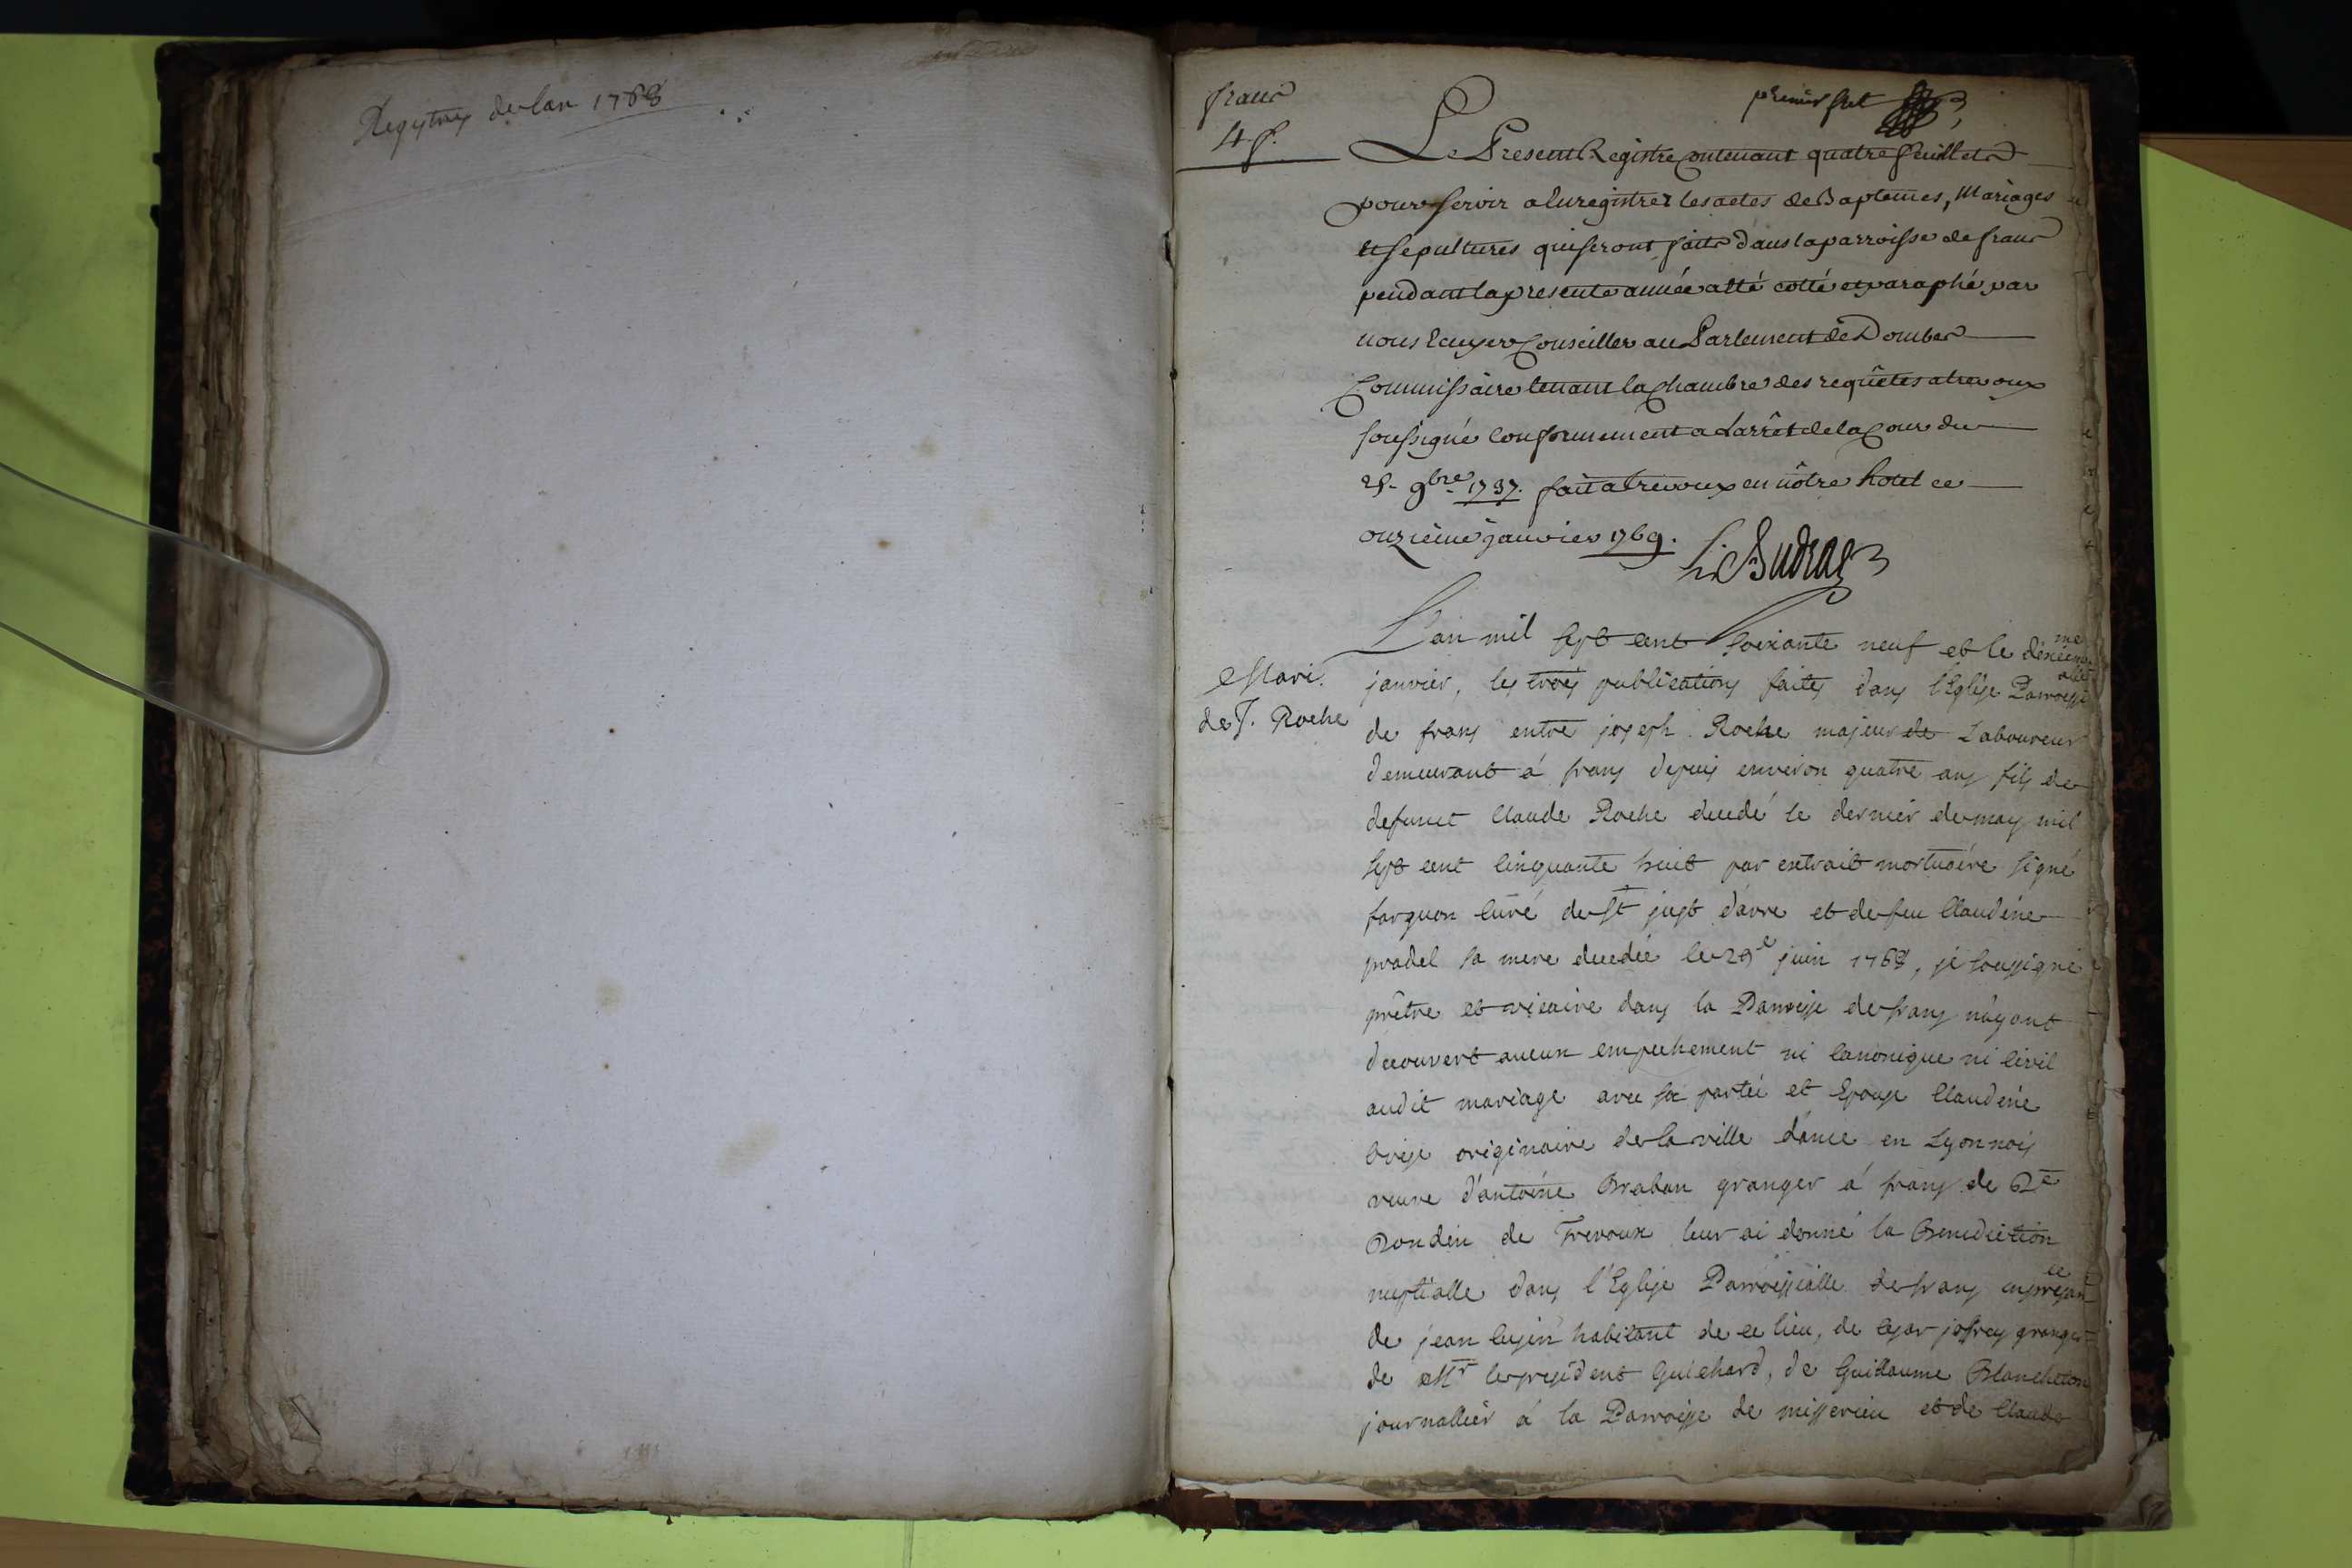 Regýtres de lan 1768
frans
4 f.
premier feuillet
Le Present Registre Contenant quatre feuillets
pour servir a Enregistrer les actes de Baptemes, Mariages
et sepultures qui seront faits dans la parroisse de frans
pendant la presente année a eté cotté et paraphé par
nous Ecuyer Conseiller au Parlement de Dombes
Commissaire tenant la Chambre des requêtes a trevoux
soussigné Conformement a Larrêt de la Cour du
9bre 1737. fait a Trevoux en nôtre hotel ce
onzieme janvier 1769.
Mari.
de J. Roche
L'an mil sept cent soixante neuf et le dixieme
janvier, les trois publications faites dans l'Eglise Parroissialle
de frans entre joseph Roche majeur de Laboureur
demeurant á frans depuis environ quatre ans fils de
defunct Claude Roche decedé le dernier de may mil
sept cent cinquante huit par extrait mortuaire signé
farguon curé de St just d'avre et de feu Claudine
pradel sa mere decedée le 29e juin 1768, je soussigné
prêtre et vicaire dans la Parroisse de frans n'ayant
decouvert aucun empechement ni canonique ni civil
audit mariage avec sa partie et Epouse Claudine
originaire de la ville d'ance en Lyonnois
veuve d'antoine Braban granger á frans de
Bondin de Trevoux leur ai donné la Benediction
nuptialle dans l'Eglise Parroissialle de frans en presance
de jean habitant de ce lieu, de joffrey granger
de Mr le president Guichard, de Guillaume Blancheton
journallier á la Parroisse de misserieu et de Claude